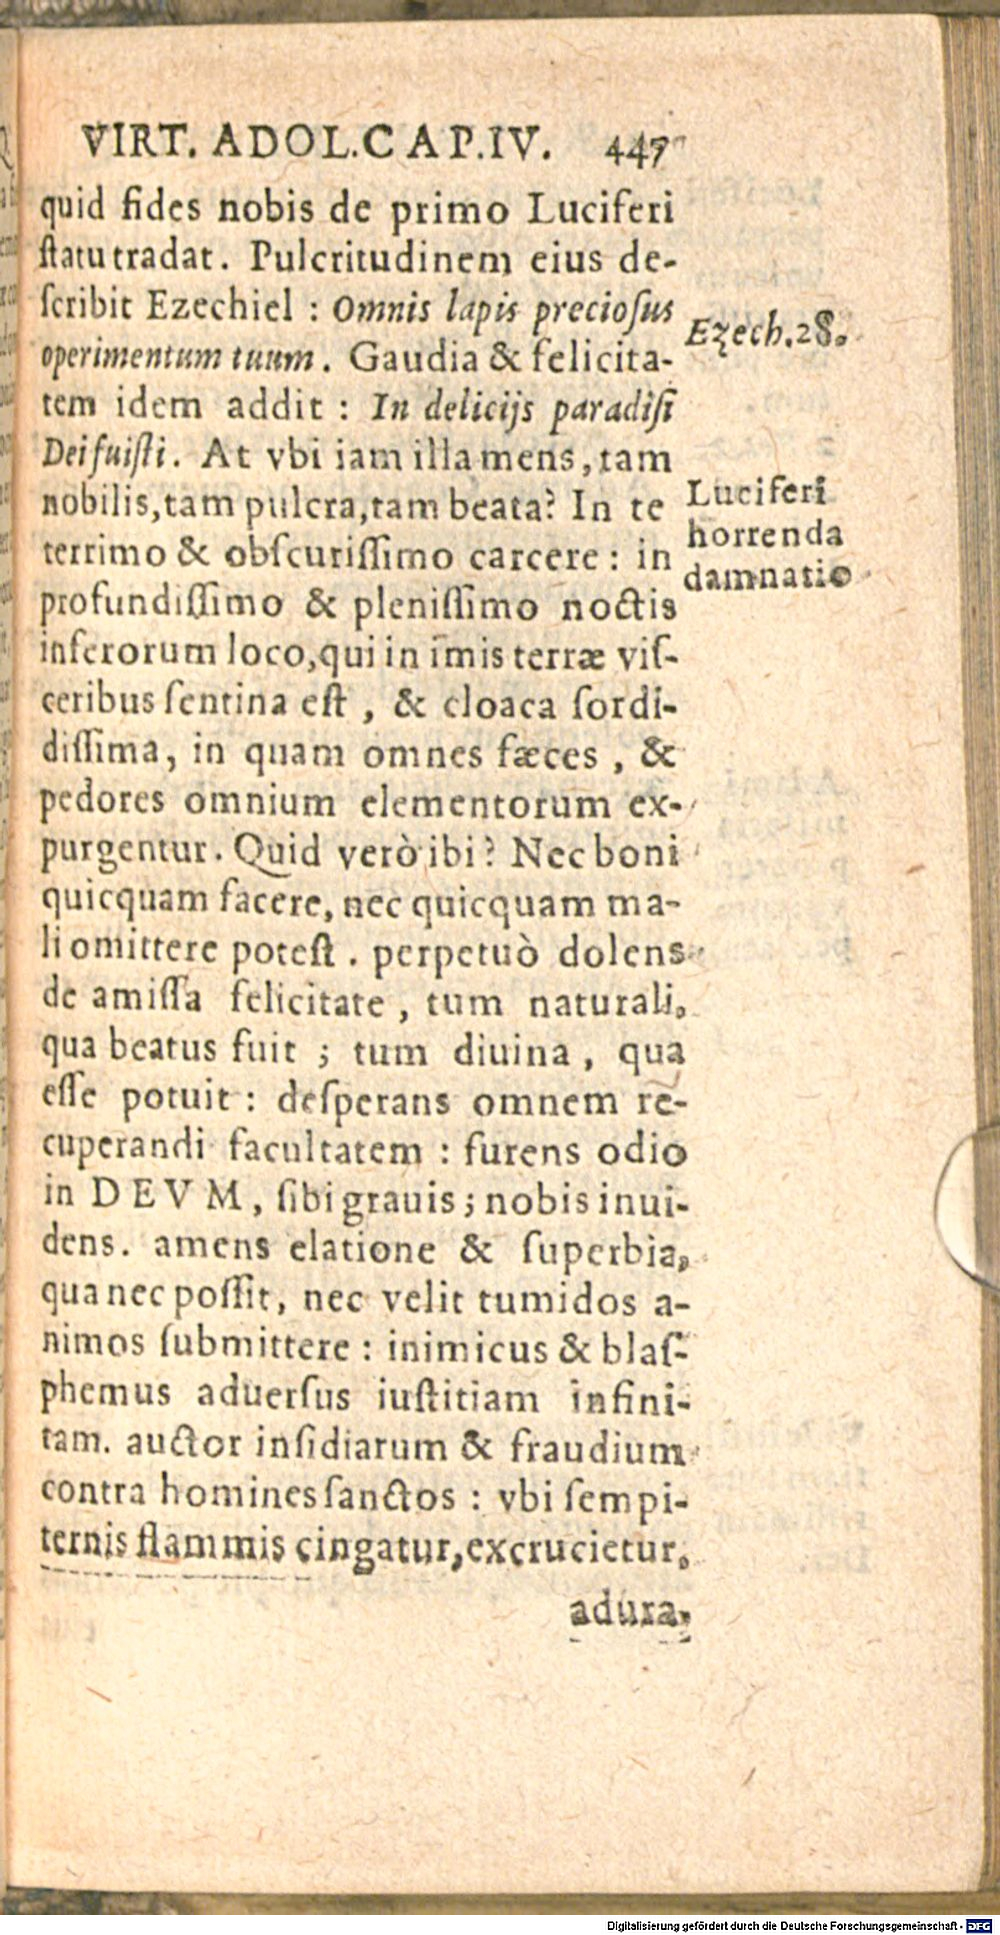 VIRT. ADOL. CAP. IV. 447
quid fides nobis de primo Luciferi
ſtatu tradat. Pulcritudinem eius de-
ſcribit Ezechiel : Omnis lapis precioſus
Ezech. 28.
operimentum tuum. Gaudia & felicita-
tem idem addit : In delicijs paradiſi
Dei fuiſti. At vbi iam illa mens, tam
nobilis, tam pulcra, tam beata? In te
Luciferi
horrenda
damnatio
terrimo & obſcuriſſimo carcere : in
profundiſſimo & pleniſſimo noctis
inferorum loco, qui in imis terræ viſ-
ceribus ſentina eſt, & cloaca ſordi-
diſſima, in quam omnes fæces, &
pedores omnium elementorum ex-
purgentur. Quid verò ibi? Nec boni
quicquam facere, nec quicquam ma-
li omittere poteſt. perpetuò dolens
de amiſſa felicitate, tum naturali,
qua beatus fuit ; tum diuina, qua
eſſe potuit : deſperans omnem re-
cuperandi facultatem : furens odio
in DEVM, ſibi grauis ; nobis inui-
dens. amens elatione & ſuperbia,
qua nec poſſit, nec velit tumidos a-
nimos ſubmittere : inimicus & blaſ-
phemus aduerſus iuſtitiam infini-
tam. auctor inſidiarum & fraudium
contra homines ſanctos : vbi ſempi-
ternis flammis cingatur, excrucietur,
adura-
Digitalisierung gefördert durch die Deutsche Forschungsgemeinschaft - DFG